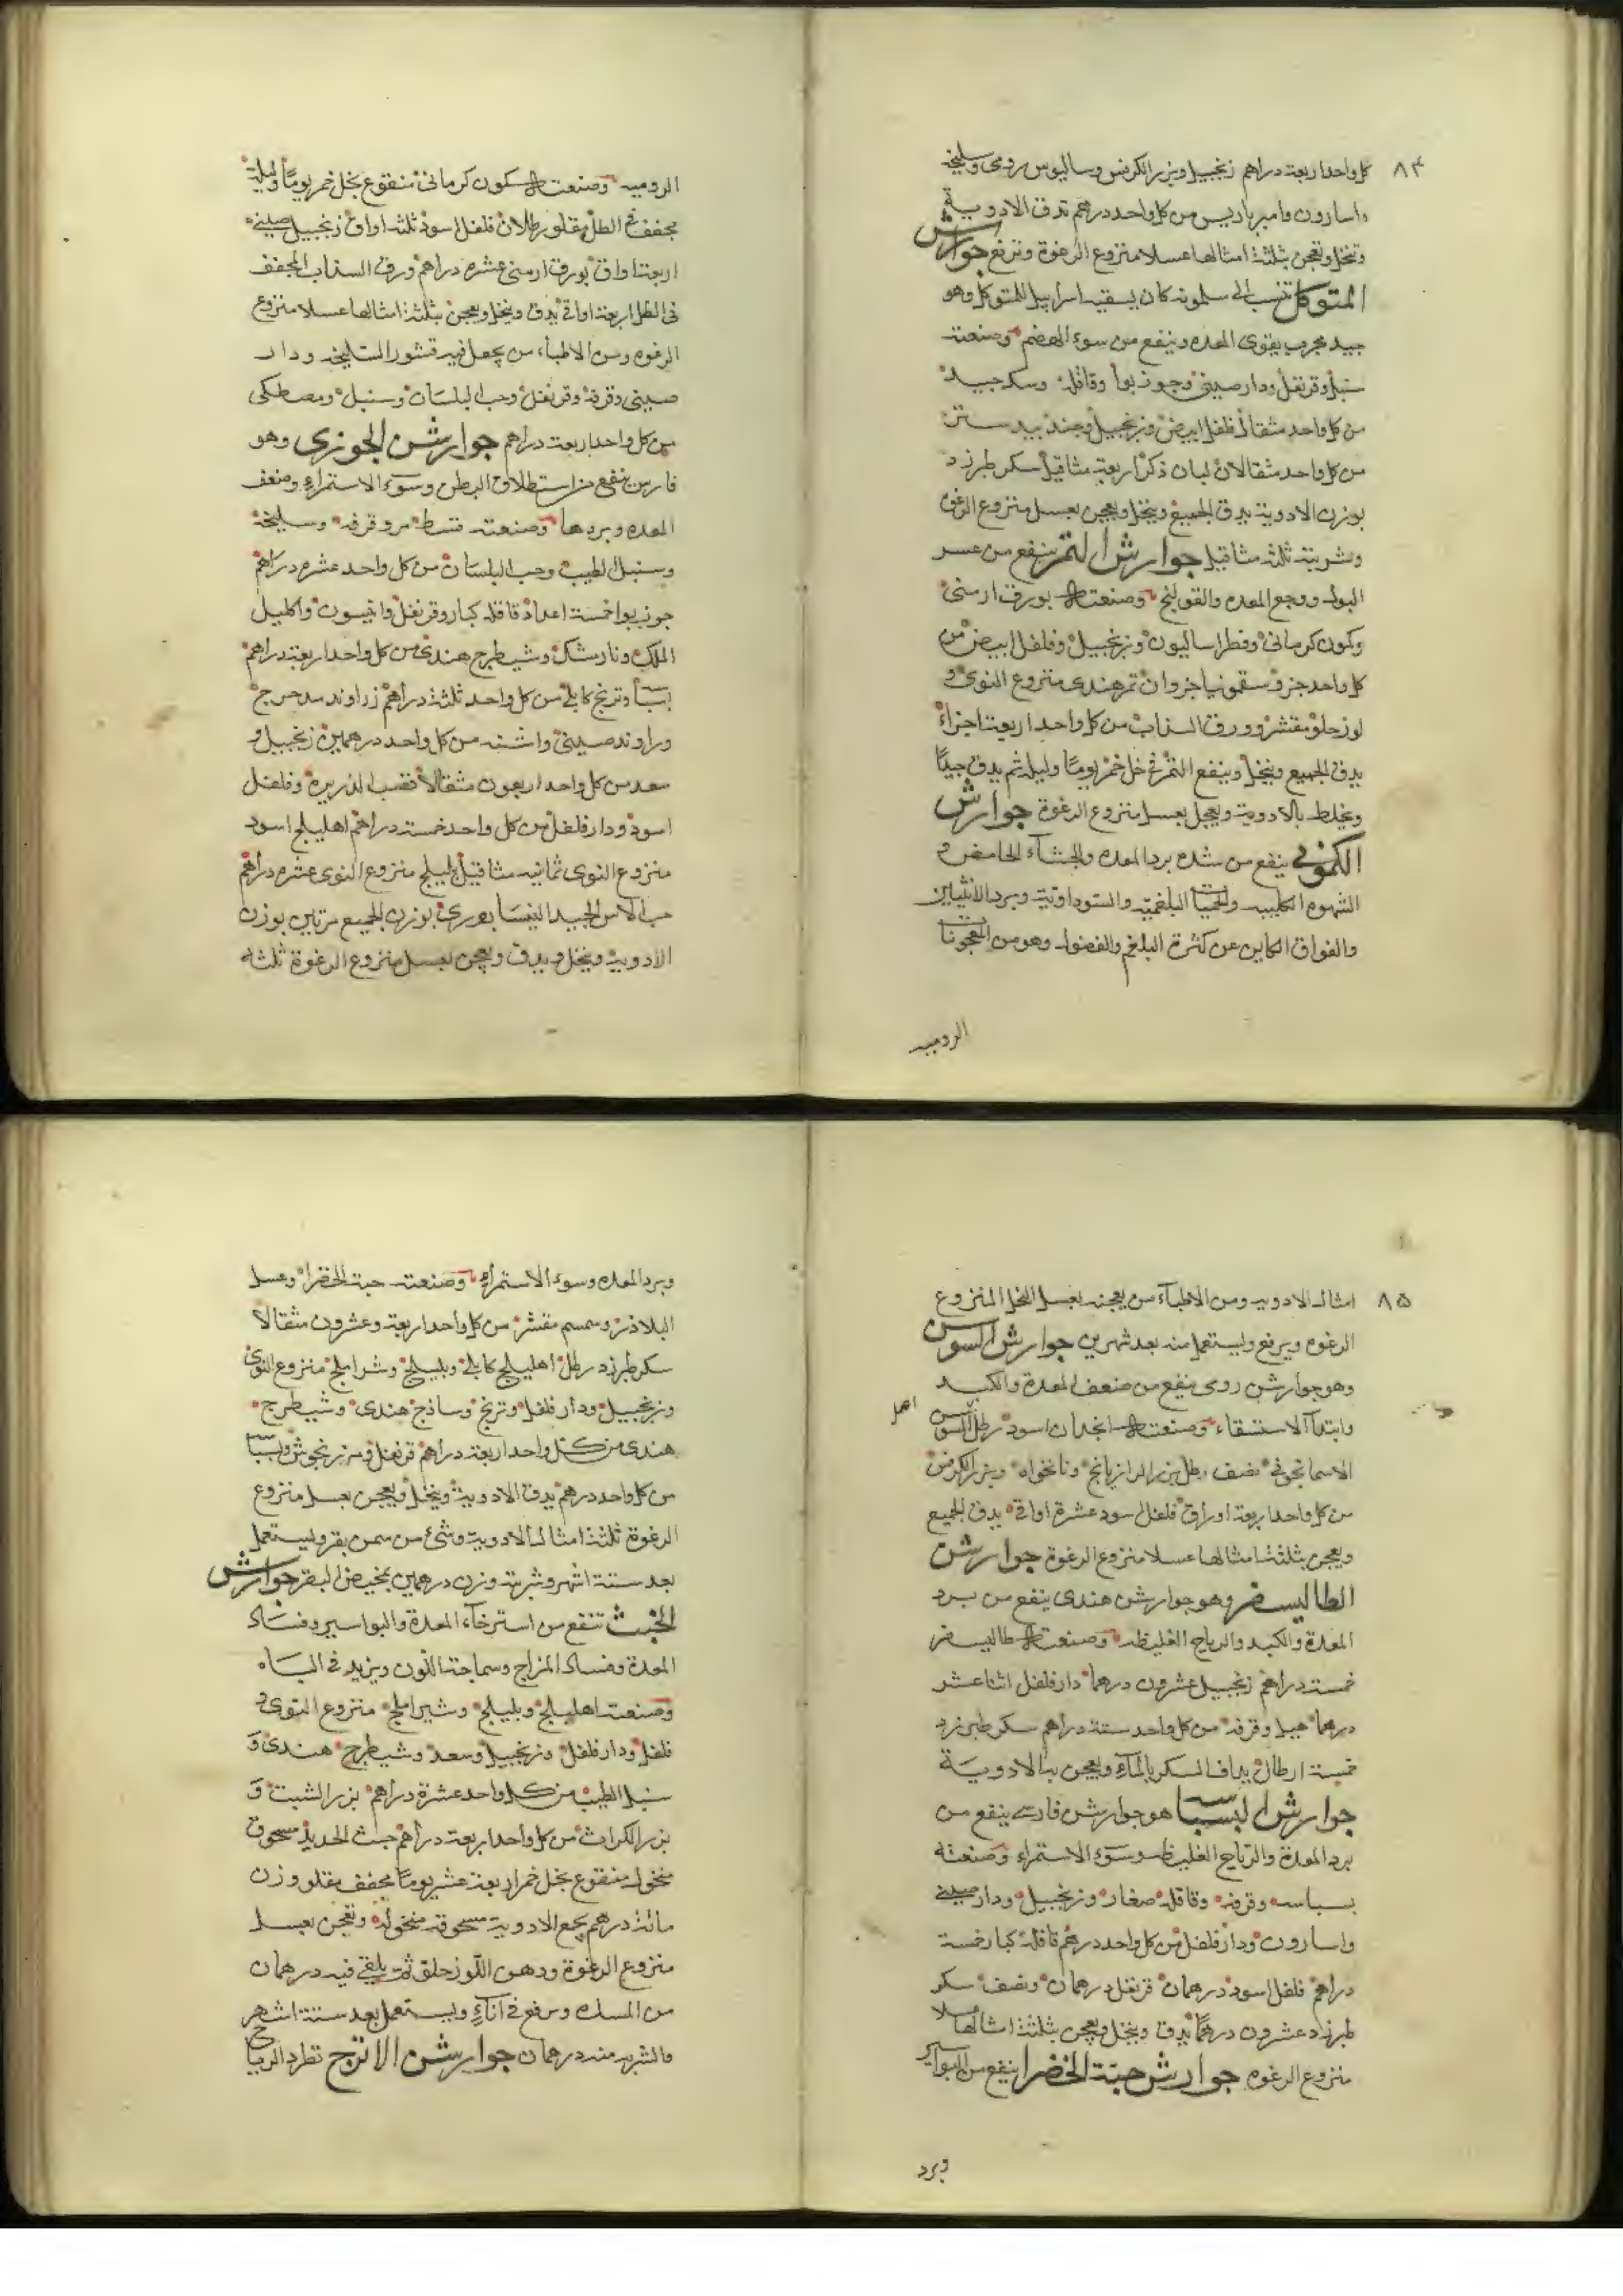 ٨٤
كل واحد اربعة دراهم زنجبيل وبزر الكرفس وساليوس رومى وسليخه
واسارون وامير باريس من كل واحد درهم تدق الادوية
وتنخل وتعجن بثلثة امثالها عسلا منزوع الرغوة وترفع جوارش
المتوكل تنسب الى سلمويه كان يسقيه اسراييل للمتوكل وهو
جيد مجرب يقوى المعده وينفع من سوء الهضم وصنعته
سنبل وقرنفل ودار صينى وجوز بوا وقاقله وسك جيد
من كل واحد مثقال فلفل ابيض وزنجبيل وجند بيد ستر
من كل واحد مثقالان لبان ذكر اربعة مثاقيل سكر طبرزد
بوزن الادوية يدق الجميع وينخل ويعجن بعسل منزوع الرغوه
وشربته ثلثه مثاقيل جوارش التمر ينفع من عسر
البول ووجع المعده والقولنج وصنعته بورق ارمنى
وكمون كرمانى وفطراساليون وزنجبيل وفلفل ابيض من
كل واحد جزو سقمونيا جزوان تمر هندى منزوع النوى و
لوز حلو مقشر وورق السذاب من كل واحد اربعة اجزاء
يدق الجميع وينخل وينقع التمر فى خل خمر يوما وليله ثم يدق جيدا
ويخلط بالادوية ويعجل بعسل منزوع الرغوة جوارش
الكمونى ينفع من شده برد المعده والجشاء الحامض و
الشهوه الكلبيه والحميات البلغمية والسوداوية وبرد الانثيين
والفواق الكاين عن كثرة البلغم والفضول وهو من المعجونات
الروميه
الروميه وصنعته كمون كرمانى منقوع بخل خمر يوما وليلة
مجفف فى الظل مقلو رطلان فلفل اسود ثلثه اواق زنجبيل صينى
اربعة اواق بورق ارمنى عشره دراهم ورق السذاب المجفف
فى الظل اربعة اواق يدق وينخل ويعجن بثلثة امثالها عسلا منزوع
الرغوه ومن الاطباء من يجعل فيه قشور السليخه ودار
صينى وقرفه وقرنفل وحب البلسان وسنبل ومصطكى
من كل واحد اربعة دراهم جوارشن الجوزى وهو
فارسى ينفع من استطلاق البطن وسوء الاستمراء وضعف
المعده وبردها وصنعته قسط مر وقرفه وسليخه
وسنبل الطيب وحب البلسان من كل واحد عشره دراهم
جوز بوا خمسة اعداد قاقله كبار وقرنفل وانيسون واكليل
الملك ونارمشك وشيطرج هندى من كل واحد اربعة دراهم
بسباسه وترنج كابلى من كل واحد ثلثة دراهم زراوند مدحرج
وراوند صينى واشنه من كل واحد درهمين زنجبيل و
سعد من كل واحد اربعون مثقالا قصب الذريره وفلفل
اسود ودار فلفل من كل واحد خمسة دراهم اهليلج اسود
منزوع النوى ثمانيه مثاقيل بليلج منزوع النوى عشره دراهم
حب الاس الجيد النيسابورى بوزن الجميع مرتين بوزن
الادويه وينخل ويدق ويعجن بعسل منزوع الرغوة ثلثه
٨٥
امثال الادويه ومن الاطباء من يعجنه بعسل النخل المنزوع
الرغوه ويرفع وليستعمل منه بعد شهرين جوارش السوسن
وهو جوارشن رومى ينفع من ضعف المعدة والكبد
وابتدآ الاستسقاء وصنعته انجدان اسود رطل السوسن
اصل
الاسمانجونى نصف رطل بزر الرازيانج ونانخواه وبزر الكرفس
من كل واحد اربعة اوراق فلفل اسود عشرة اواقى يدق الجميع
ويعجن بثلثة امثالها عسلا منزوع الرغوة جوارشن
الطاليسفر وهو جوارشن هندى ينفع من برد
المعدة والكبد والرياح الغليظه وصنعته طاليسفر
خمسة دراهم زنجبيل عشرون درهما دار فلفل اثنا عشر
درهما هيل وقرفه من كل واحد ستة دراهم سكر طبرزد
خمسة ارطال يداف السكر بالماء ويعجن به الادوية
جوارش البسباسه هو جوارشن فارسى ينفع من
برد المعدة والرياح الغليظه وسوء الاستمراء وصنعته
بسباسه وقرفه وقاقله صغار وزنجبيل ودار صينى
واسارون ودار فلفل من كل واحد درهم قاقله كبار خمسة
دراهم فلفل اسود درهمان قرنفل درهمان ونصف سكر
طبرزد عشرون درهما يدق وينخل ويعجن بثلثة امثالها عسلا
منزوع الرغوه جوارش حبة الخضرا ينفع من البواسير
وبرد
وبرد المعده وسوء الاستمراء وصنعته حبة الخضرا وعسل
البلاذر وسمسم مقشر من كل واحد اربعة وعشرون مثقالا
سكر طبرزد رطل اهليلج كابلى وبليلج وشير املج منزوع النوى
وزنجبيل ودار فلفل وترنج وساذج هندى وشيطرج
هندى من كل واحد اربعة دراهم قرنفل ومرزنجوش وبسباسه
من كل واحد درهم يدق الادوية وينخل ويعجن بعسل منزوع
الرغوة ثلثة امثال الادوية وشئ من سمن بقر ويستعمل
بعد ستة اشهر وشربته وزن درهمين بمخيض البقر جوارش
الخبث تنفع من استرخاء المعدة والبواسير وفساد
المعدة وفساد المزاج وسماجة اللون ويزيد فى الباه
وصنعته اهليلج وبليلج وشير املج منزوع النوى و
فلفل ودار فلفل وزنجبيل وسعد وشيطرج هندى و
سنبل الطيب من كل واحد عشرة دراهم بزر الشبت و
بزر الكراث من كل واحد اربعة دراهم خبث الحديد مسحوق
منخول منقوع بخل خمر اربعة عشر يوما مجفف مقلو وزن
مائة درهم يجمع الادوية مسحوقه منخوله وتعجن بعسل
منزوع الرغوة ودهن اللوز حلو ثم يلقى فيه درهمان
من المسك ويرفع فى اناء ويستعمل بعد ستة اشهر
والشربه منه درهمان جوارشن الاترج تطرد الرياح